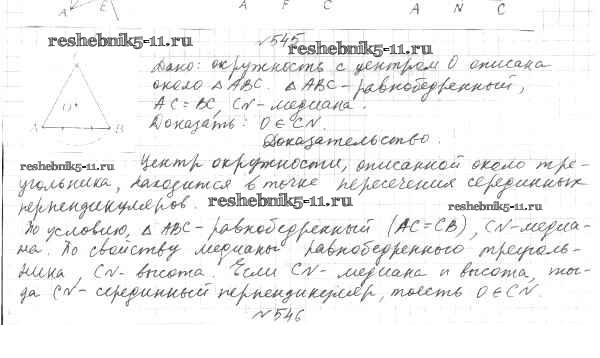 A E A F C A N C
reshebnik5-11.ru №545 reshebnik5-11.ru
Дано: окружность с центром O описана
около △ABC. △ABC - равнобедренный,
AC=BC, CN - медиана.
O
A B Доказать: O∈CN.
Доказательство.
reshebnik5-11.ru Центр окружности, описанной около тре-
угольника, находится в точке пересечения серединных
перпендикуляров. reshebnik5-11.ru reshebnik5-11.ru
По условию, △ABC - равнобедренный (AC=CB), CN - медиа-
на. По свойству медианы равнобедренного треуголь-
ника, CN - высота. Если CN - медиана и высота, тог-
да CN - серединный перпендикуляр, то есть O∈CN.
№546